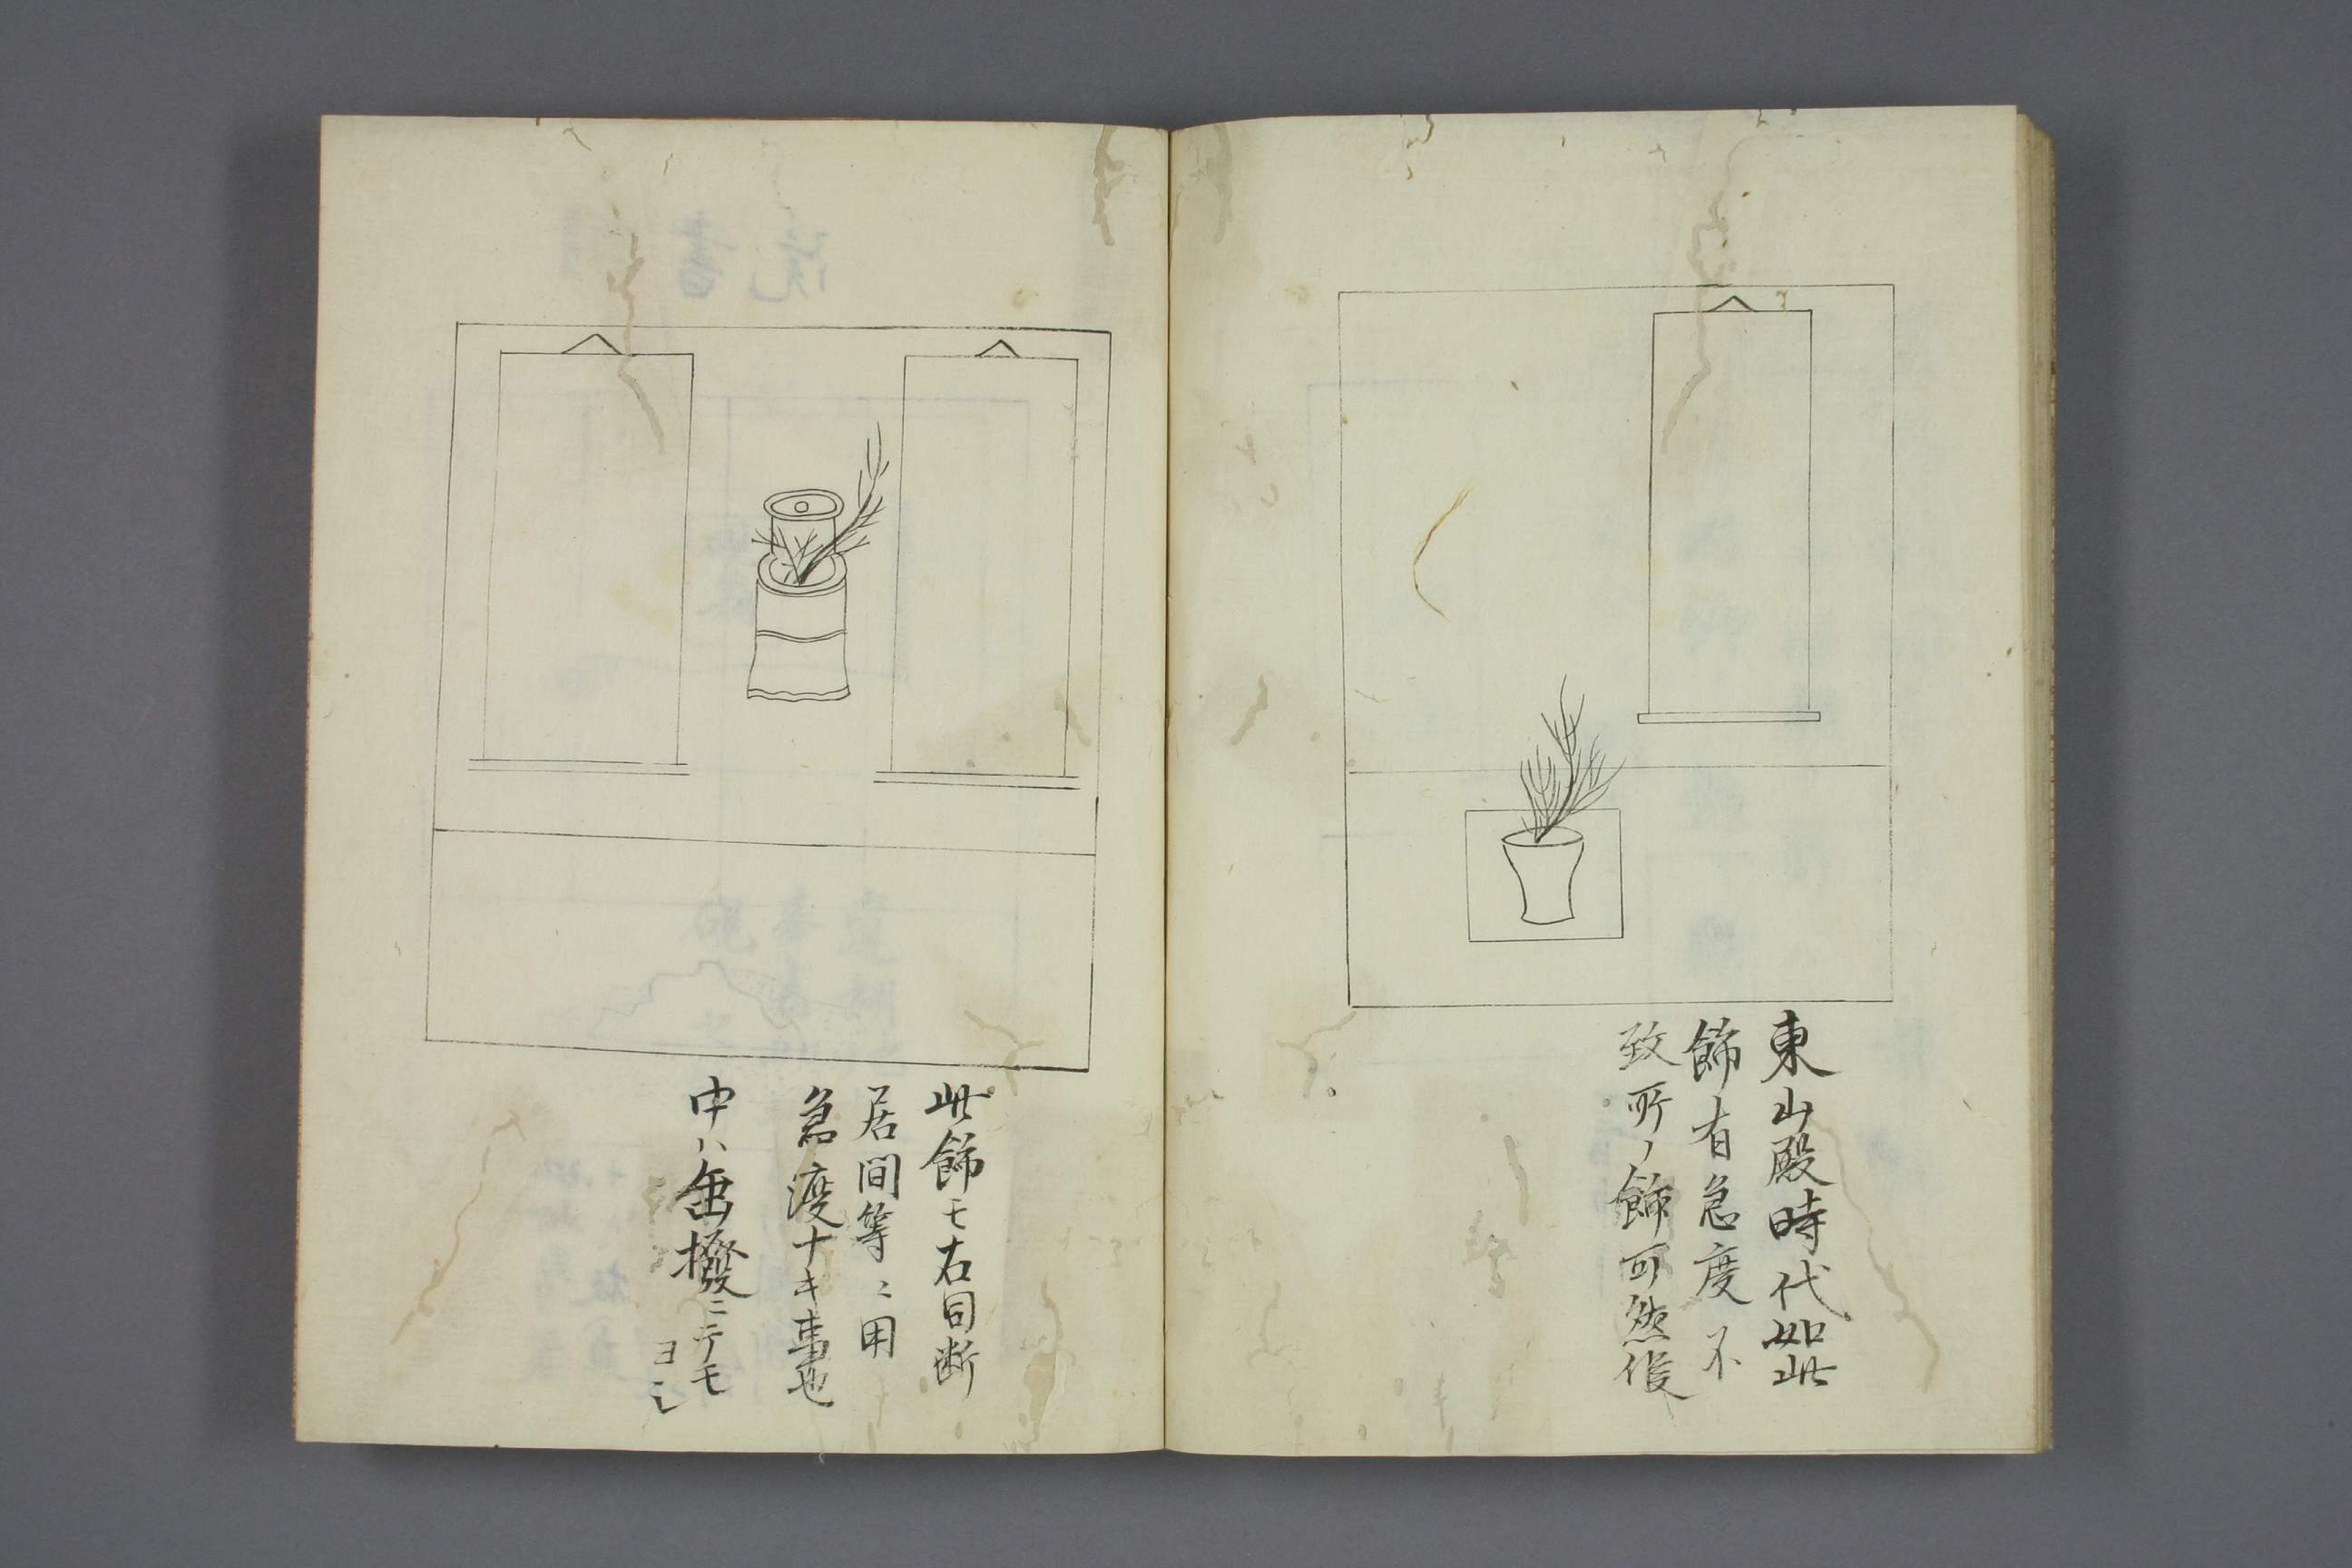 東山殿時代如此
飾有急度不
致所ノ飾可然候
此飾モ右同断
居間等ニ用
急度ナキ事也
中ハ畚撥ニテモ
ヨシ